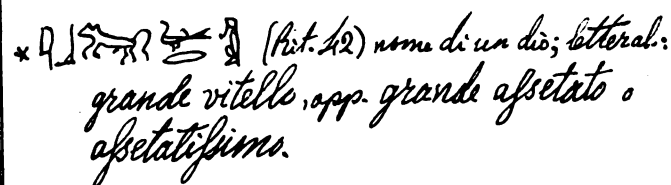 * (Rit. 42) nome di un dio; letteral.:
grande vitello, opp. grande aſsetato o
aſsetatiſsimo.